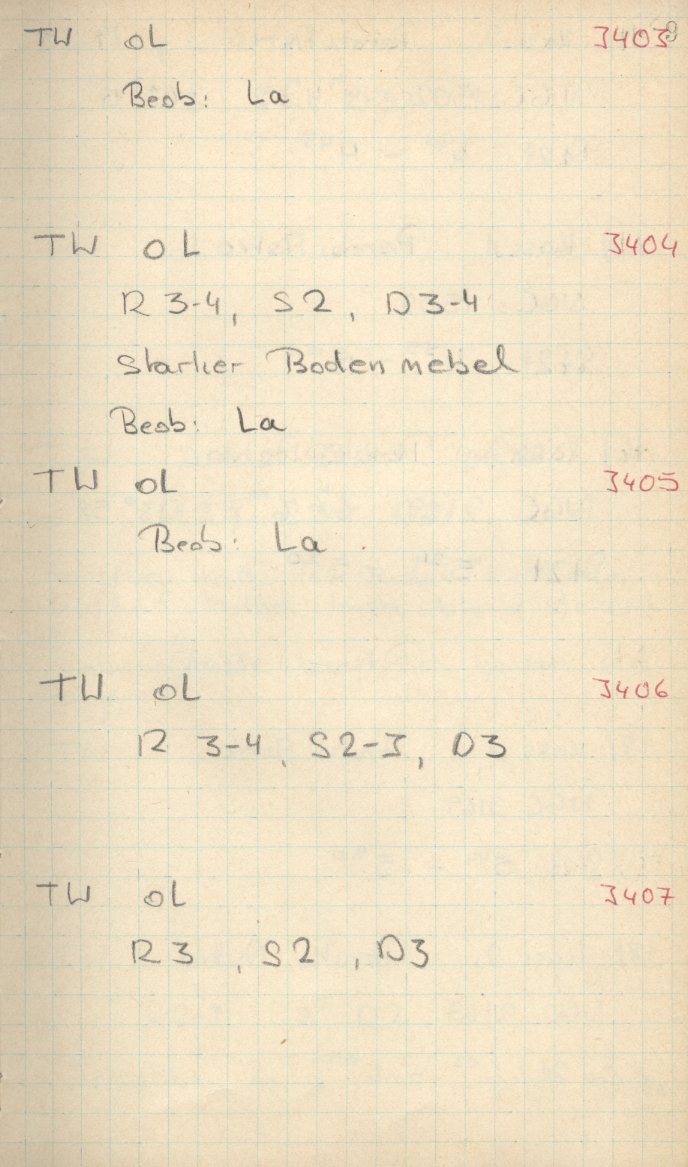 TW oL 3403 9
Beob: La
TW oL 3404
R 3-4, S2, D3-4
Starker Bodennebel
Beob: La
TW oL 3405
Beob: La
TW oL 3406
R 3-4, S2-3, D3
TW oL 3407
R3, S2, D3